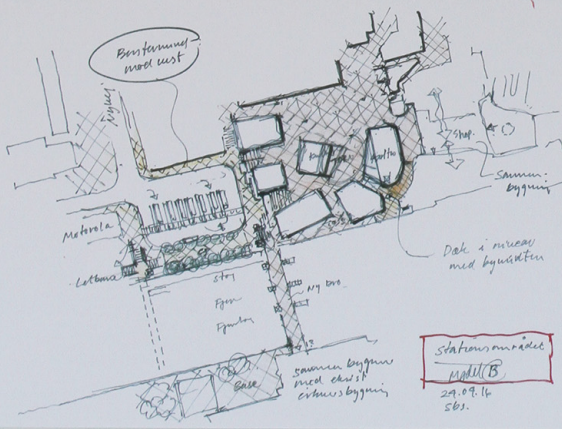 Busterminal
mod vest
Nybyg
Shop.
Sammen-
bygning
Motorola
Letbane
Dæk i niveau
med bymidten
Støj
Fjern
Ny bro.
Base
sammenbygning
med eksist
erhvervsbygning
Stationsområdet
Model B
29.09.14
SBS.